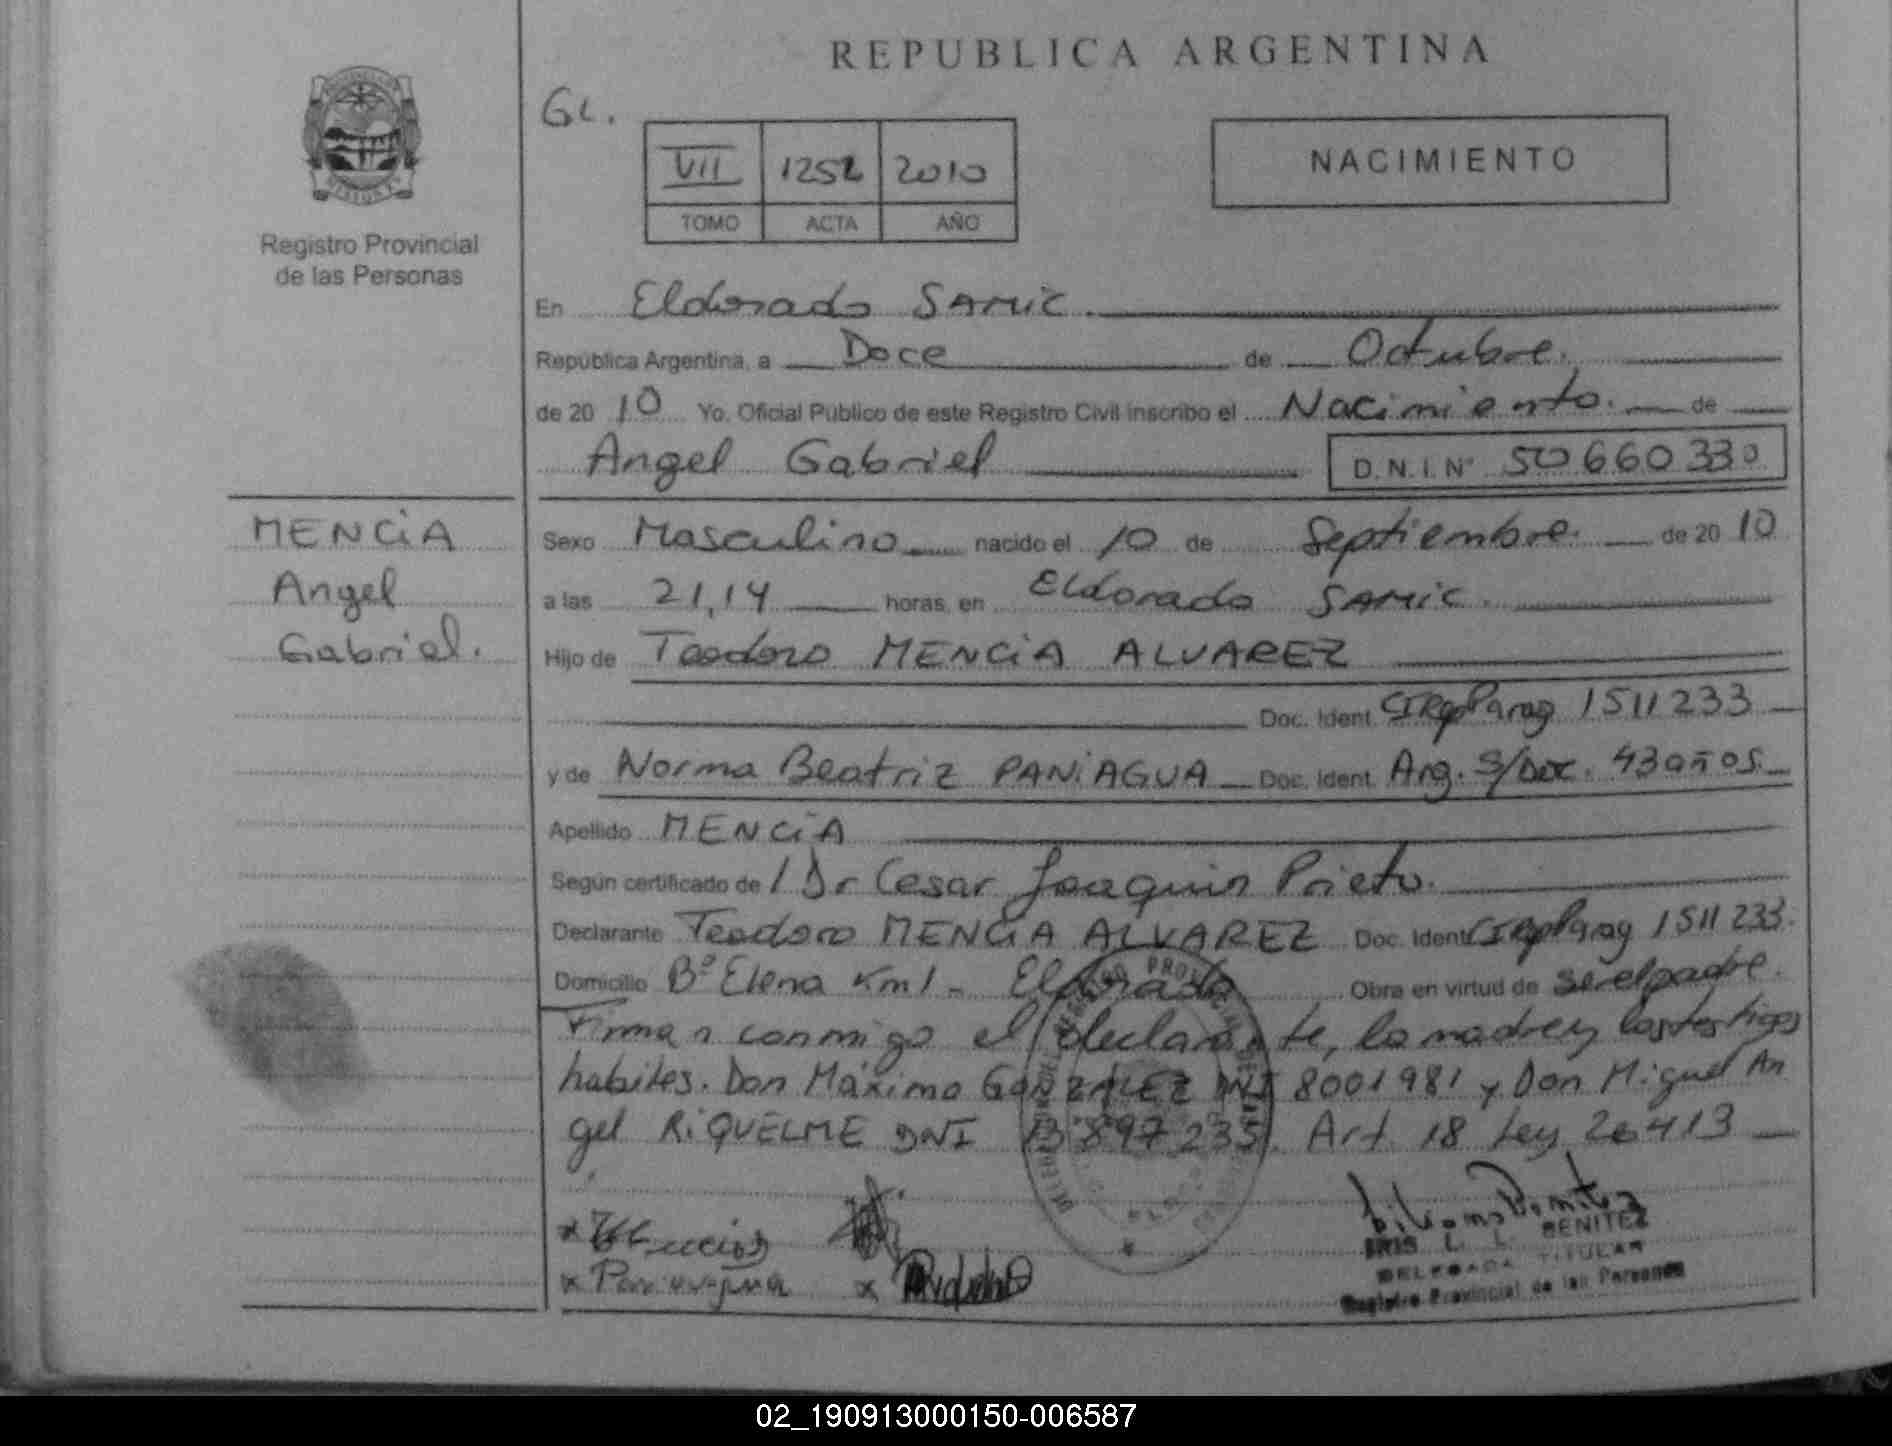 REPUBLICA ARGENTINA
GL.
VII 1252 2010
TOMO ACTA AÑO
NACIMIENTO
Registro Provincial
de las Personas
En Eldorado SAMIC.
República Argentina, a Doce de Octubre.
de 2010 Yo, Oficial Público de este Registro Civil inscribo el Nacimiento. de
Angel Gabriel D.N.I. N° 50660330
MENCiA
Angel
Gabriel.
Sexo Masculino nacido el 10 de Septiembre. de 2010
a las 21,14 horas, en Eldorado SAMIC.
Hijo de Teodoro MENCiA ALVAREZ
Doc. Ident. CIRepParag 1511233
y de Norma Beatriz PANiAGUA Doc. Ident. Arg. S/Doc. 43 años.
Apellido MENCiA
Según certificado de / Dr Cesar Joaquin Prieto.
Declarante Teodoro MENCiA ALVAREZ Doc. Ident. CIRepParag 1511233.
Domicilio B° Elena Km1 - Eldorado Obra en virtud de ser el padre.
Firman conmigo el declarante, la madre y los testigos
habiles. Don Máximo GONZALEZ DNI 8001981 y Don Miguel An
gel RiQUELME DNI 13897235. Art. 18 Ley 26413
x
x Paniagua x
IRIS L. L. BENITEZ
DELEGADA TITULAR
Registro Provincial de las Personas
02_190913000150-006587